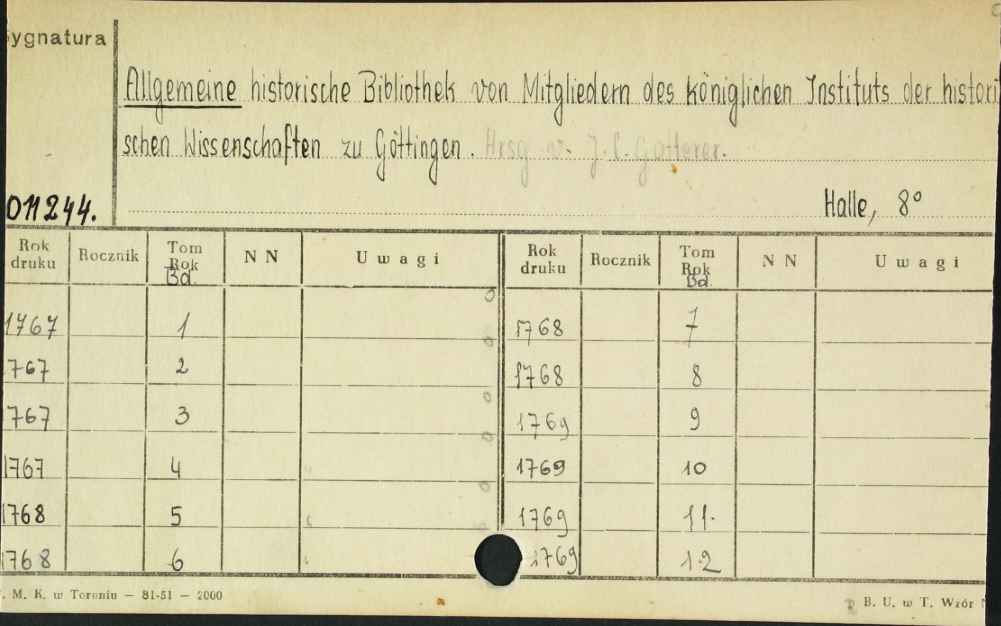 Sygnatura
Allgemeine historische Bibliothek von Mitgliedern des königlichen Instituts der histori
schen Wissenschaften zu Göttingen. Hrsg v. J. C. Gatterer.
011244.
Halle, 8°
Rok druku Rocznik Tom Rok Bd. N N Uwagi Rok druku Rocznik Tom Rok Bd. N N Uwagi
1767 1 1768 7
767 2 1768 8
767 3 1769 9
1767 4 1769 10
1768 5 1769 11.
1768 6 1769 12
. M. K. w Toruniu — 81-51 — 2000
B. U. w T. Wzór